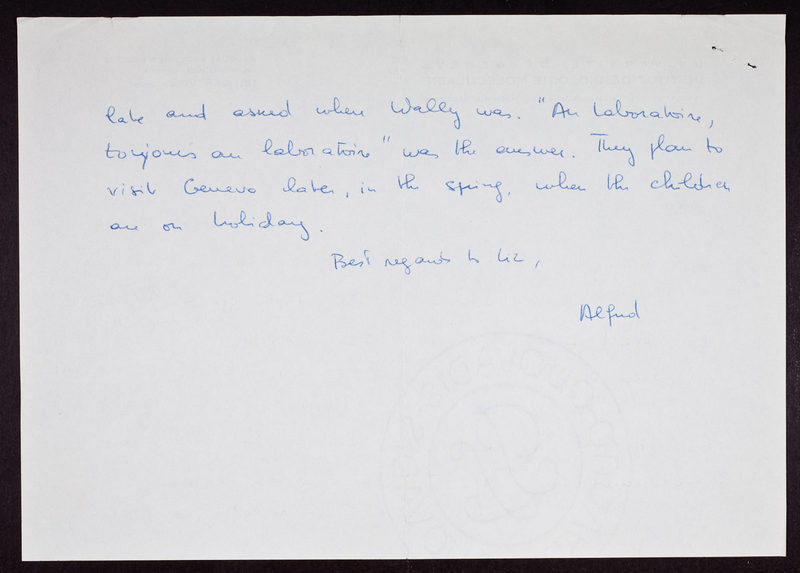 late and asked when Wally was. "Au Laboratoire,
toujours au laboratoire" was the answer. They plan to
visit Geneva later, in the spring, when the children
are on holiday.
Best regards to Liz,
Alfred